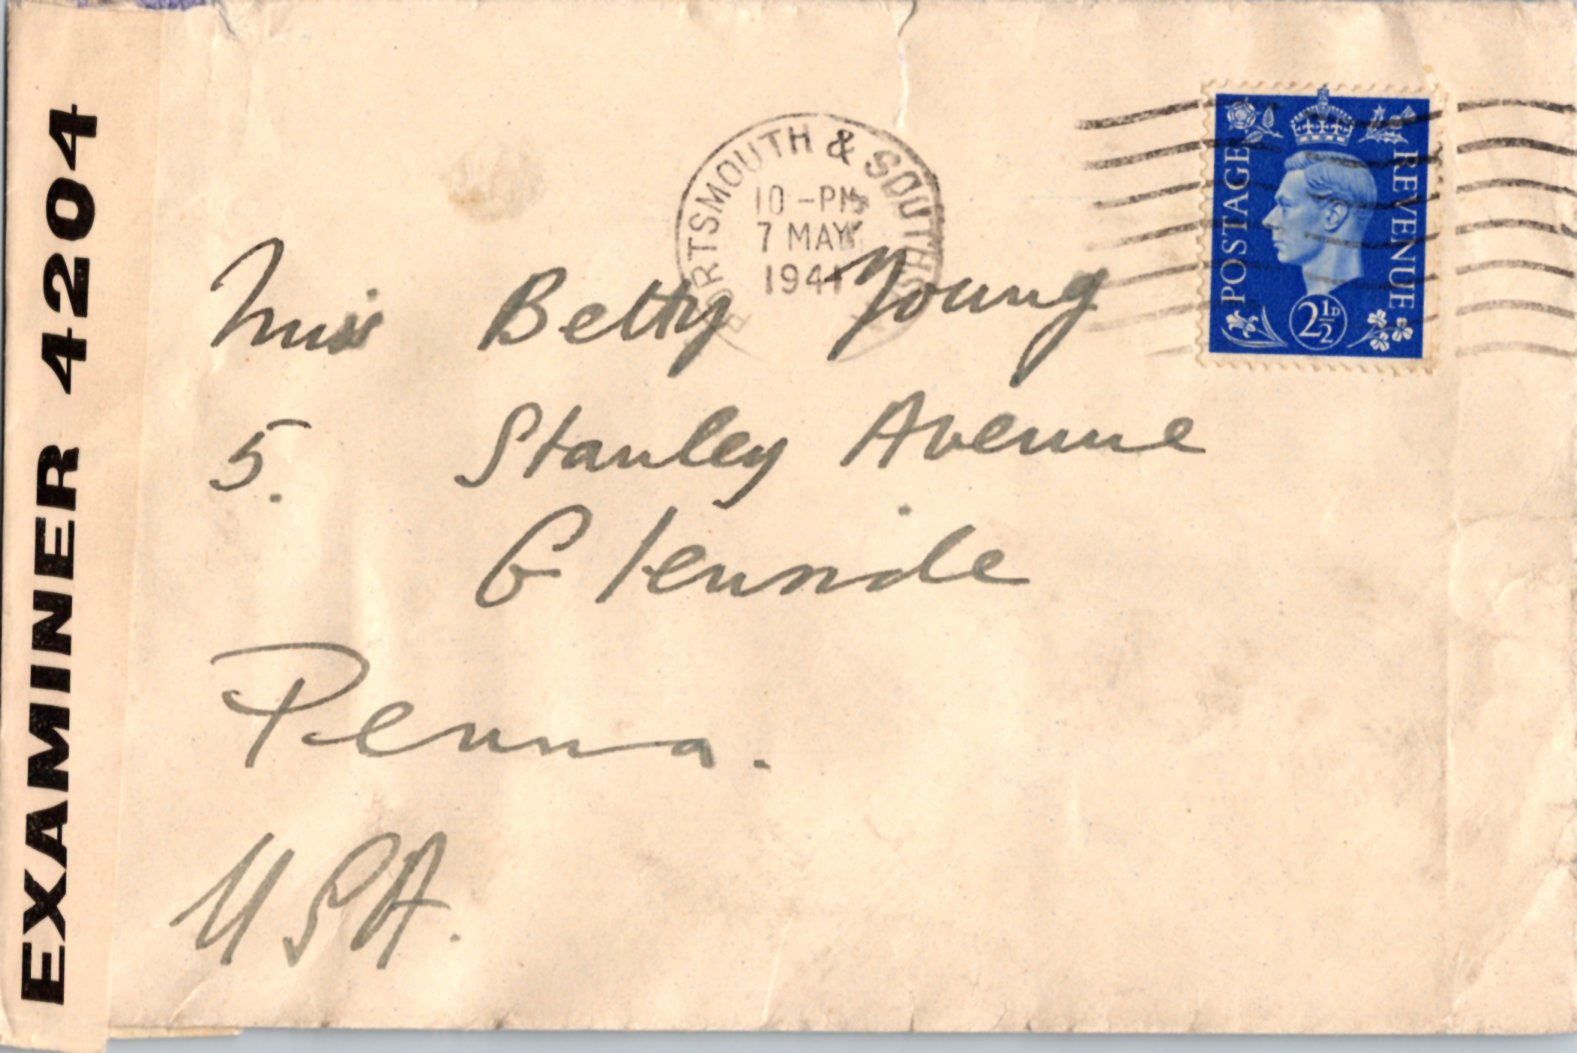 EXAMINER 4204
PORTSMOUTH & SOUTHSEA
10-PM
7 MAY
1941
POSTAGE
REVENUE
2½D
Miss Betty Young
5. Stanley Avenue
Glenside
Penna.
USA.